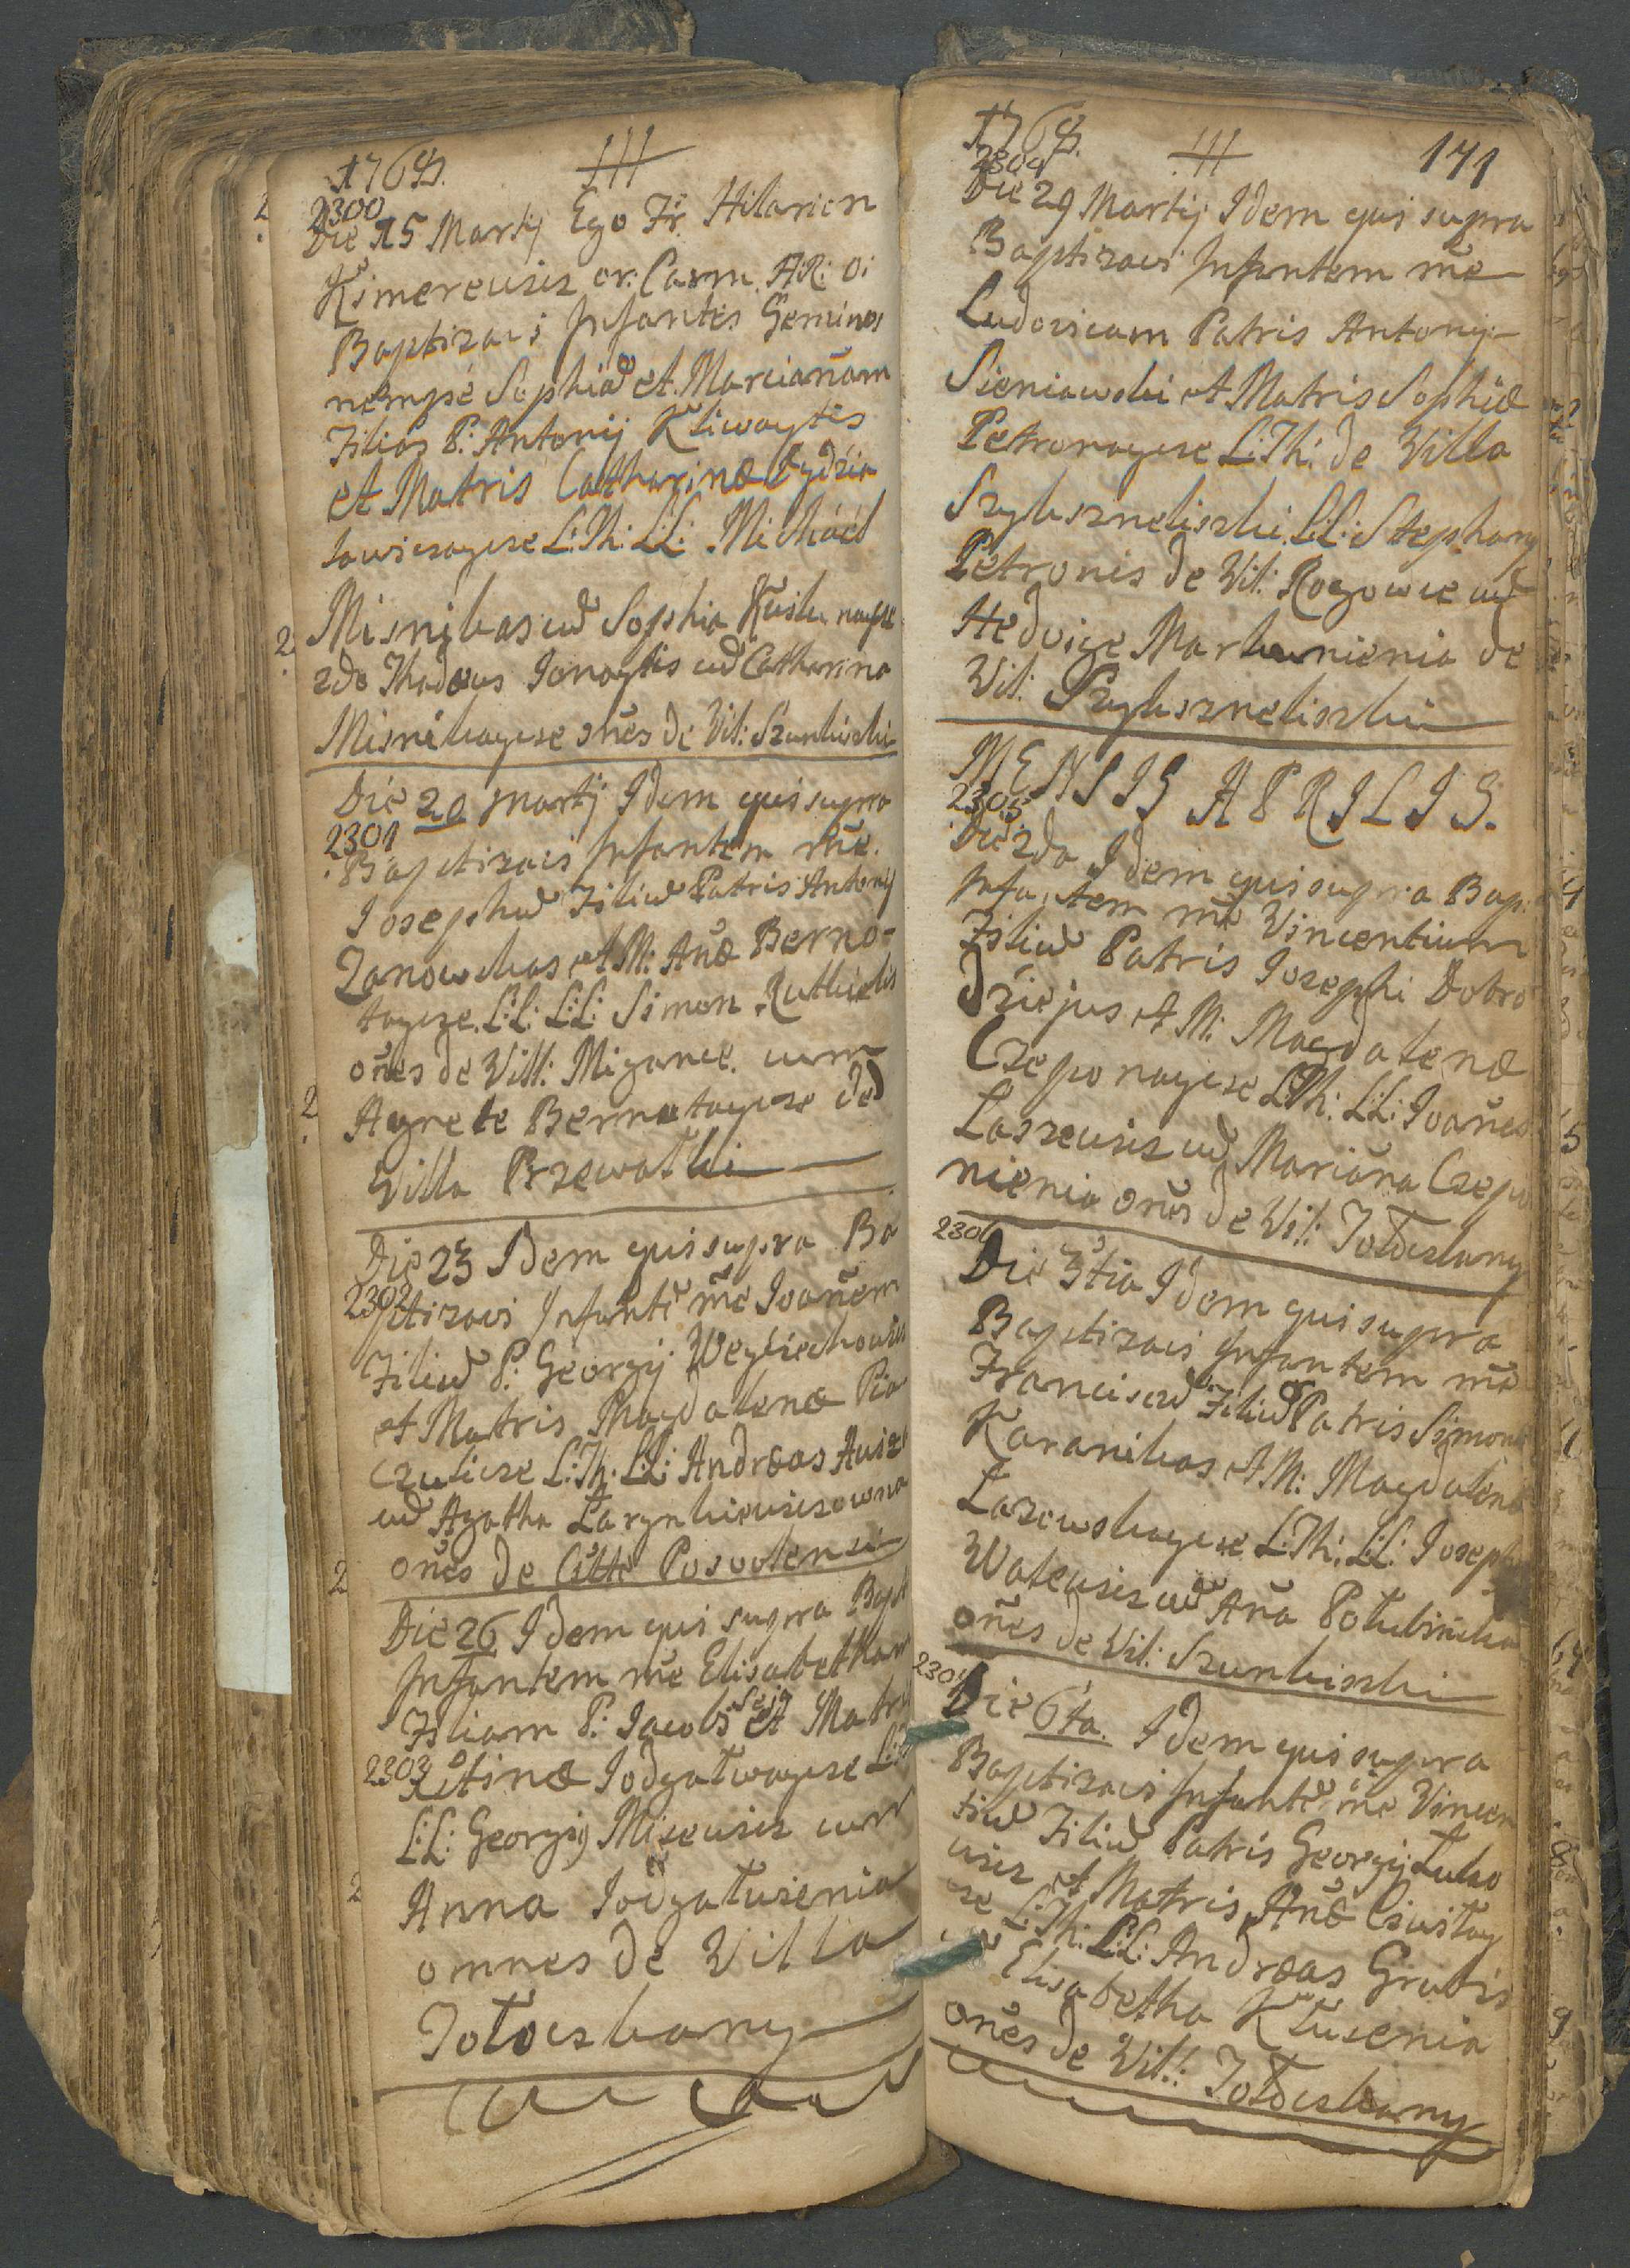 1768.
III
2300
Die 15 Martij Ego Fr. Hilarion
Kimereusis or: Carm. A:R: O:
Baptizavi Infantes Geminos
nempse Sophiam et Marcianam
Filias P: Antonij Kliwaytis
et Matris Catharinæ
L:Th: L:L: Michael
Misnikas cum Sophia
2do Thadeus Jonaytis cum Catharina
Misnikayce omēs de Vil: Szunkiszki
Die 20 Martij Idem qui supra
2301
Baptizavi Infantem nīe
Josephum Filium Patris Antonij
Zanowskas et M: Anæ Berno-
tayce. L:L: L:L: Simon
omēs de Vill: Migance. cum
Agnete Bernatayce de
Villa Przewałki
Die 23 Idem qui supra Ba
2302
ptizavi Infantē nīe Joañem
Filium P: Georgij
et Matris Magdalenæ Pia
czulicse L:Th: L:L: Andreas
cum Agatha
omēs de Citte Posvolensi
Die 26 Idem qui supra Bapt
Infantem nīe Elisabetham
Filiam P: Jacobi et Matris
2303
Jodgatwaycse
L:L: Georgij Miseusis cum
Anna Jodgatusenia
omnes de Villa
Jotoiskany
1768.
III
171
2304
Die 29 Martij Idem qui supra
Baptizavi Infantem nīe
Ludovicam Patris Antonij
Sieniawski et Matris Sophiæ
Petronaycse L:Th: de Villa
Szykszneliszki L:L: Stephany
Petronis de Vil: Rogowie cum
Hedvige Markunienia de
Vil: Szykszneliszki
MENSIS APRILIS.
2305
Die 2da Idem qui supra Bap:
Infantem nīe Vincentium
Filium Patris Josephi Dobro
dziejus et M: Magdalenæ
Czeponaycse L:Th: L:L: Joañes
Laszeusis cum Mariāna Czepo
nienia omēs de Vil: Jotoiskany
2306
Die 3tia Idem qui supra
Baptizavi Infantem nīe
Franciscum Filium Patris Simonis
Karanikas et M: Magdalenæ
Lazowskaycse L:Th: L:L: Joseph
Wateusis cum Aña
omēs de Vil: Szunkiszki
Die 6ta. Idem qui supra
Baptizavi Infantē nīe Vincen
tium Filium Patris Georgij Luko
usis et Matris Anæ Ciustay
se L:Th: L:L: Andreas Grubis
cum Elisabetha Klusenia
omēs de Vill: Jotoiskany